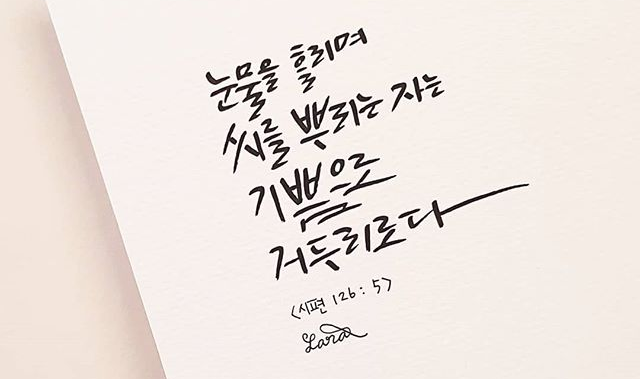 눈물을 흘리며
씨를 뿌리는 자는
기쁨으로
거두리로다
<시편 126:5>
Lara